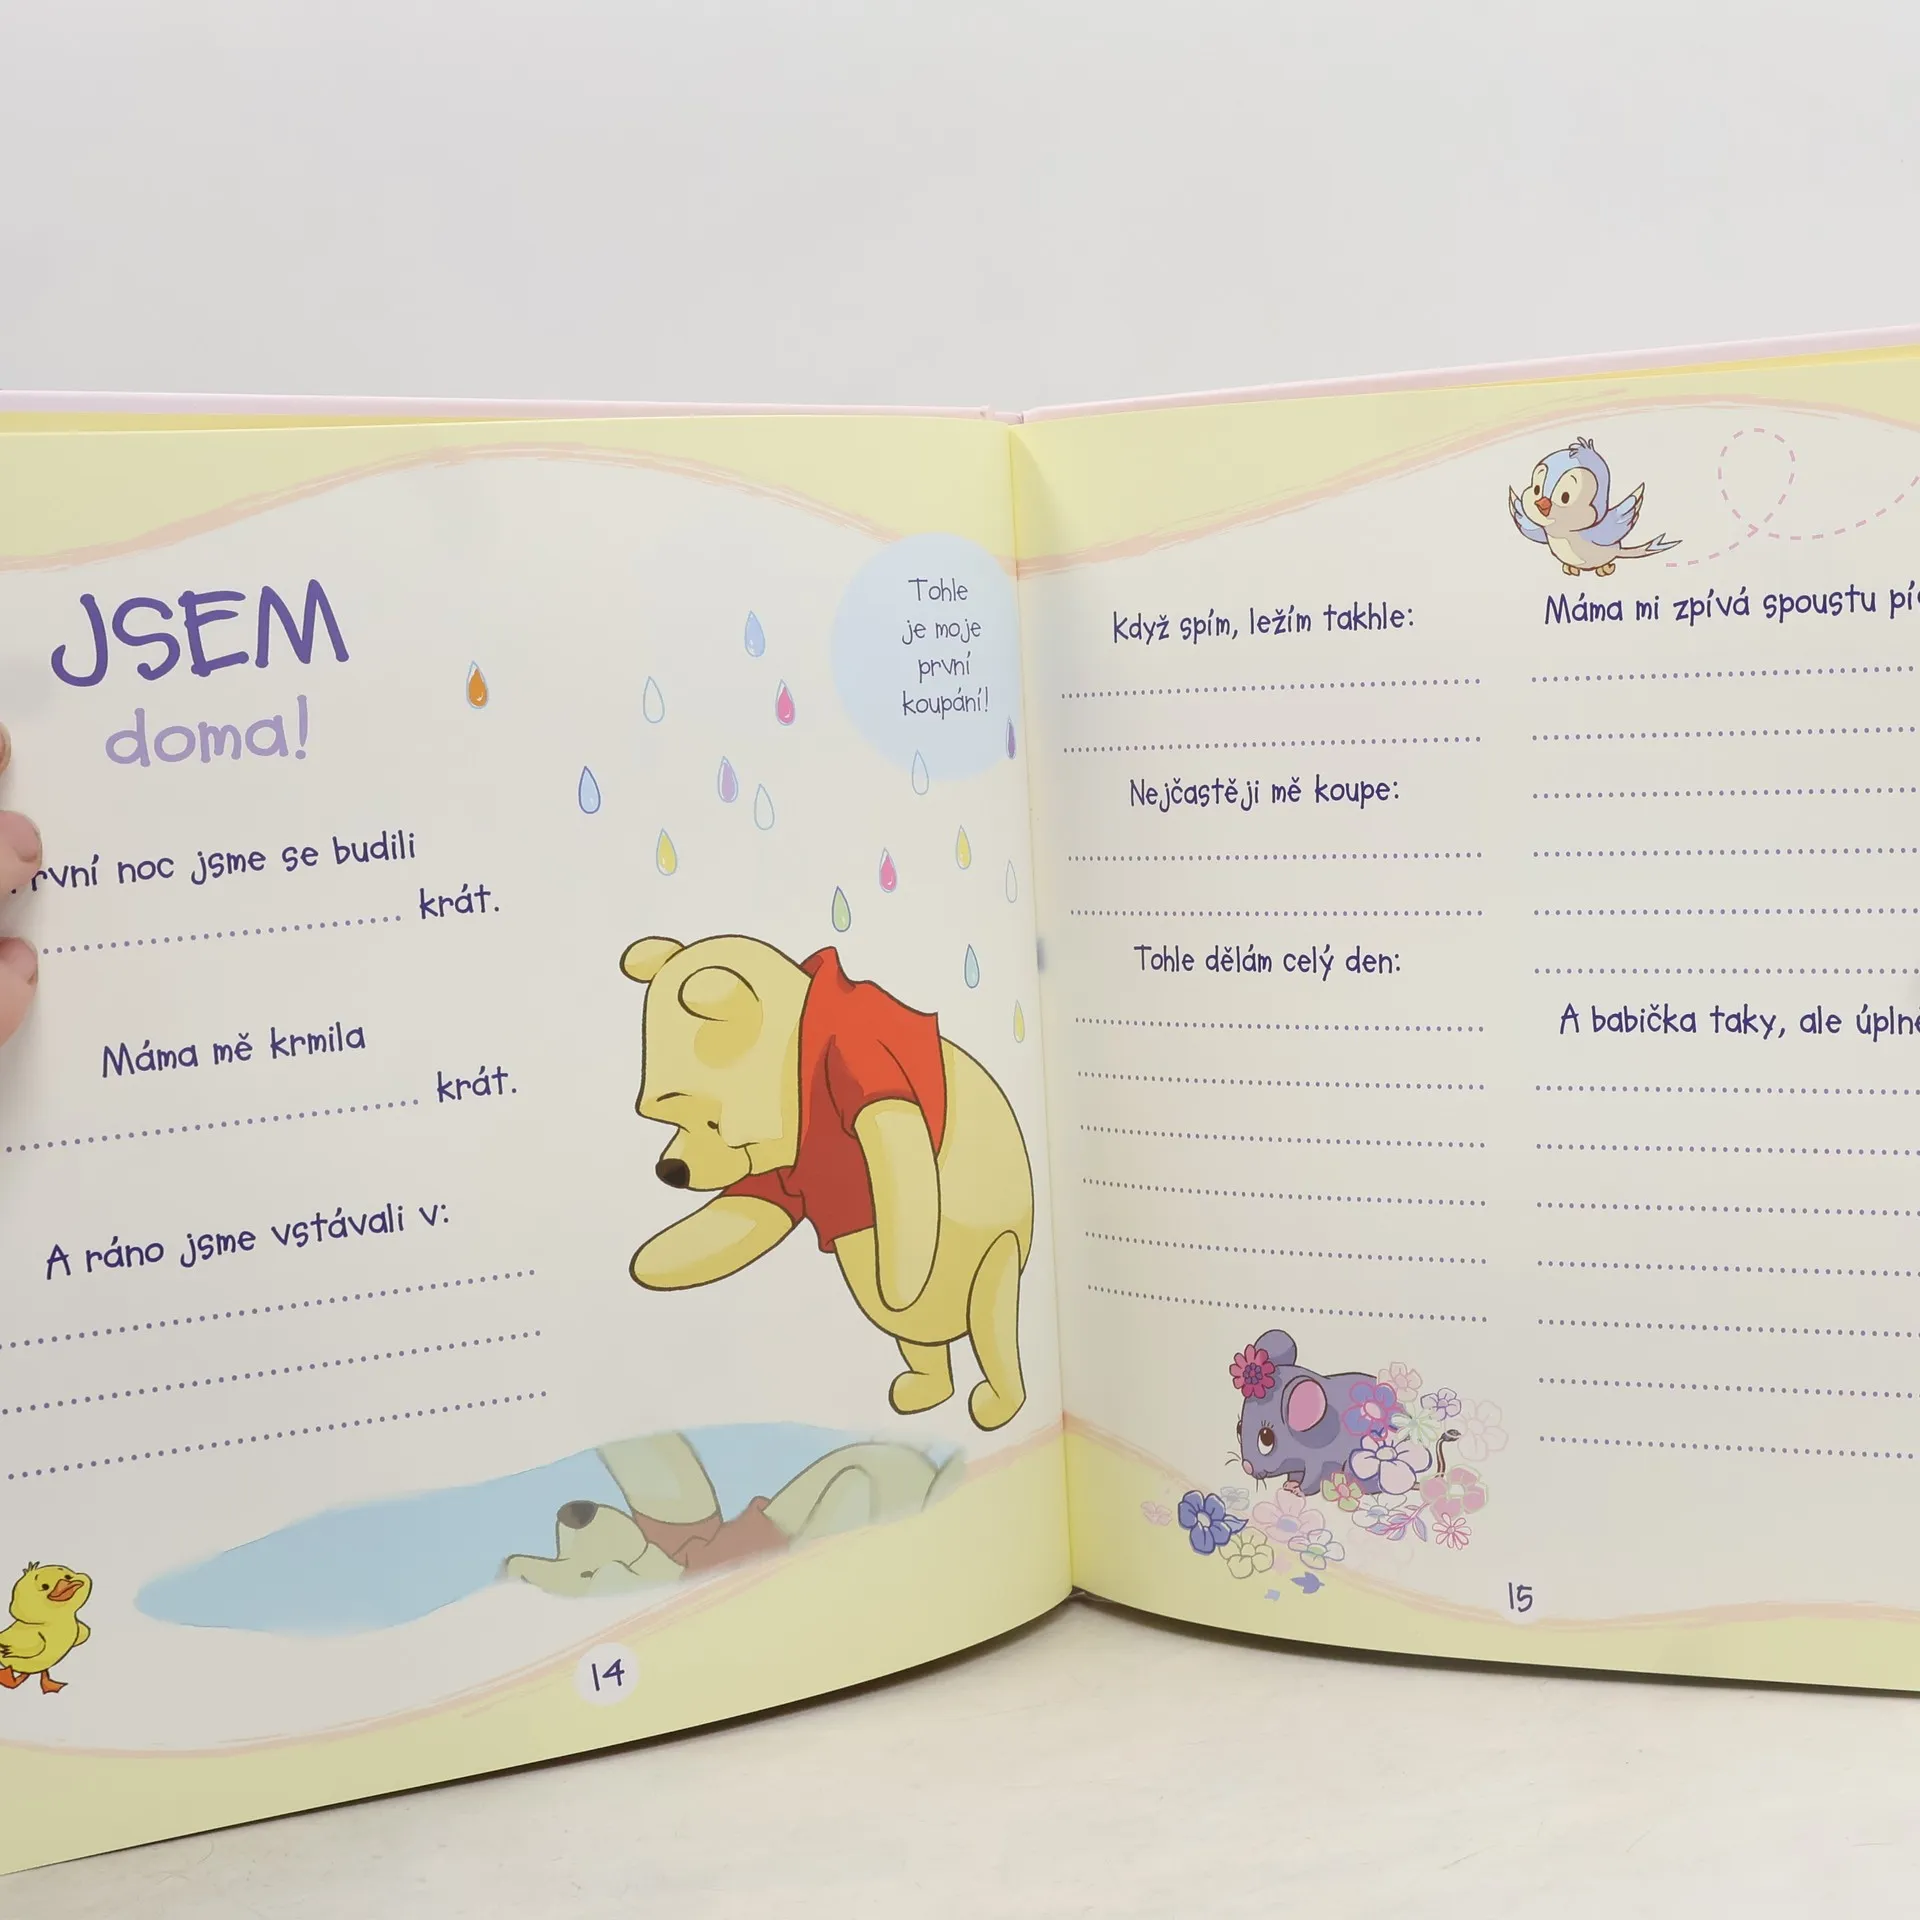 JSEM
doma!
noc jsme se budili
krát.
Máma mě krmila
krát.
A ráno jsme vstávali v:
Tohle
je moje
první
koupání!
14
Když spím, ležím takhle:
Nejčastěji mě koupe:
Tohle dělám celý den:
Máma mi zpívá spoustu
A babička taky, ale
15